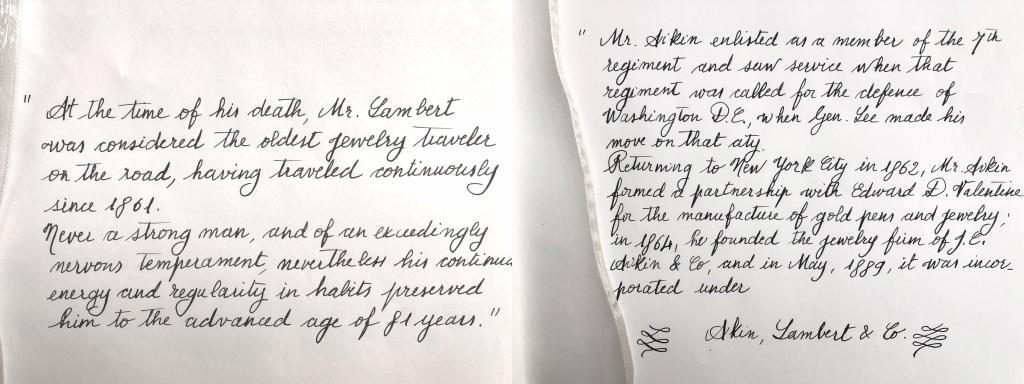 " At the time of his death, Mr. Lambert
was considered the oldest jewelry traveler
on the road, having traveled continuously
since 1861.
Never a strong man, and of an exceedingly
nervous temperament, nevertheless his continua
energy and regularity in habits preserved
him to the advanced age of 81 years."
" Mr. Aikin enlisted as a member of the 7th
regiment and saw service when that
regiment was called for the defence of
Washington D.C., when Gen. Lee made his
move on that city.
Returning to New York City in 1862, Mr. Aikin
formed a partnership with Edward D. Valentine
for the manufacture of gold pens and jewelry;
in 1864, he founded the jewelry firm of J.C.
Aikin & Co, and in May, 1889, it was incor-
porated under
Aikin, Lambert & Co.